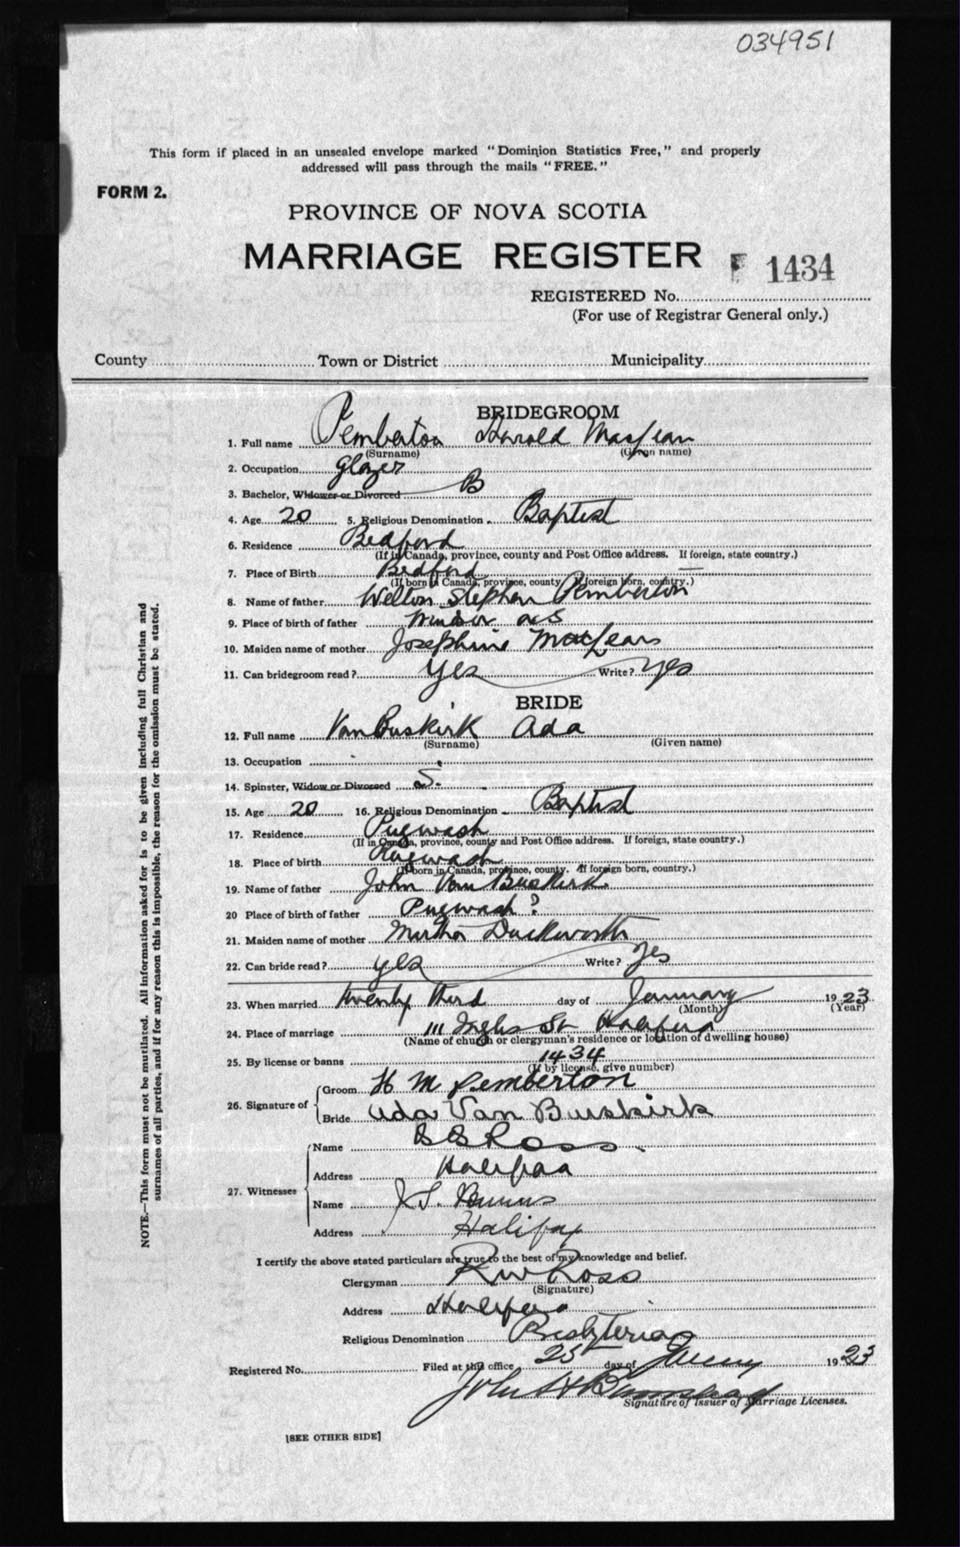 034951
This form if placed in an unsealed envelope marked "Dominion Statistics Free," and properly
addressed will pass through the mails "FREE."
FORM 2.
PROVINCE OF NOVA SCOTIA
MARRIAGE REGISTER
1434
REGISTERED No.
(For use of Registrar General only.)
County Town or District Municipality
BRIDEGROOM
1. Full name Pemberton Harold MacLean
(Surname) (Given name)
2. Occupation Glazer
3. Bachelor, Widower or Divorced B
4. Age 20 5. Religious Denominatión Baptist
6. Residence Bedford
(If in Canada, province, county and Post Office address. If foreign, state country.)
7. Place of Birth Bedford
(If born in Canada, province, county. If foreign born, country.)
8. Name of father Welton Stephen Pemberton
9. Place of birth of father Windsor NS
10. Maiden name of mother Josephine MacLean
11. Can bridegroom read? Yes Write? Yes
BRIDE
12. Full name Van Buskirk Ada
(Surname) (Given name)
13. Occupation
14. Spinster, Widow or Divorced S.
15. Age 20 16. Religious Denomination Baptist
17. Residence Pugwash
(If in Canada, province, county and Post Office address. If foreign, state country.)
18. Place of birth Pugwash
(If born in Canada, province, county. If foreign born, country.)
19. Name of father John Van Buskirk
20 Place of birth of father Pugwash?
21. Maiden name of mother Duckworth
22. Can bride read? yes Write? Yes
23. When married twenty third day of January 1923
(Month) (Year)
24. Place of marriage 111 Inglis St Halifax
(Name of church or clergyman's residence or location of dwelling house)
25. By license or banns 1434
(If by license, give number)
26. Signature of Groom H M Pemberton
Bride Ada Van Buskirk
27. Witnesses Name Ross
Address Halifax
Name Burns
Address Halifax
I certify the above stated particulars are true to the best of my knowledge and belief.
Clergyman R W Ross
(Signature)
Address Halifax
Religious Denomination Presbyterian
Registered No. Filed at the office 25 day of January 1923
John
Signature of Issuer of Marriage Licenses.
[SEE OTHER SIDE]
NOTE.—This form must not be mutilated. All information asked for is to be given including full Christian and
surnames of all parties, and if for any reason this is impossible, the reason for the omission must be stated.